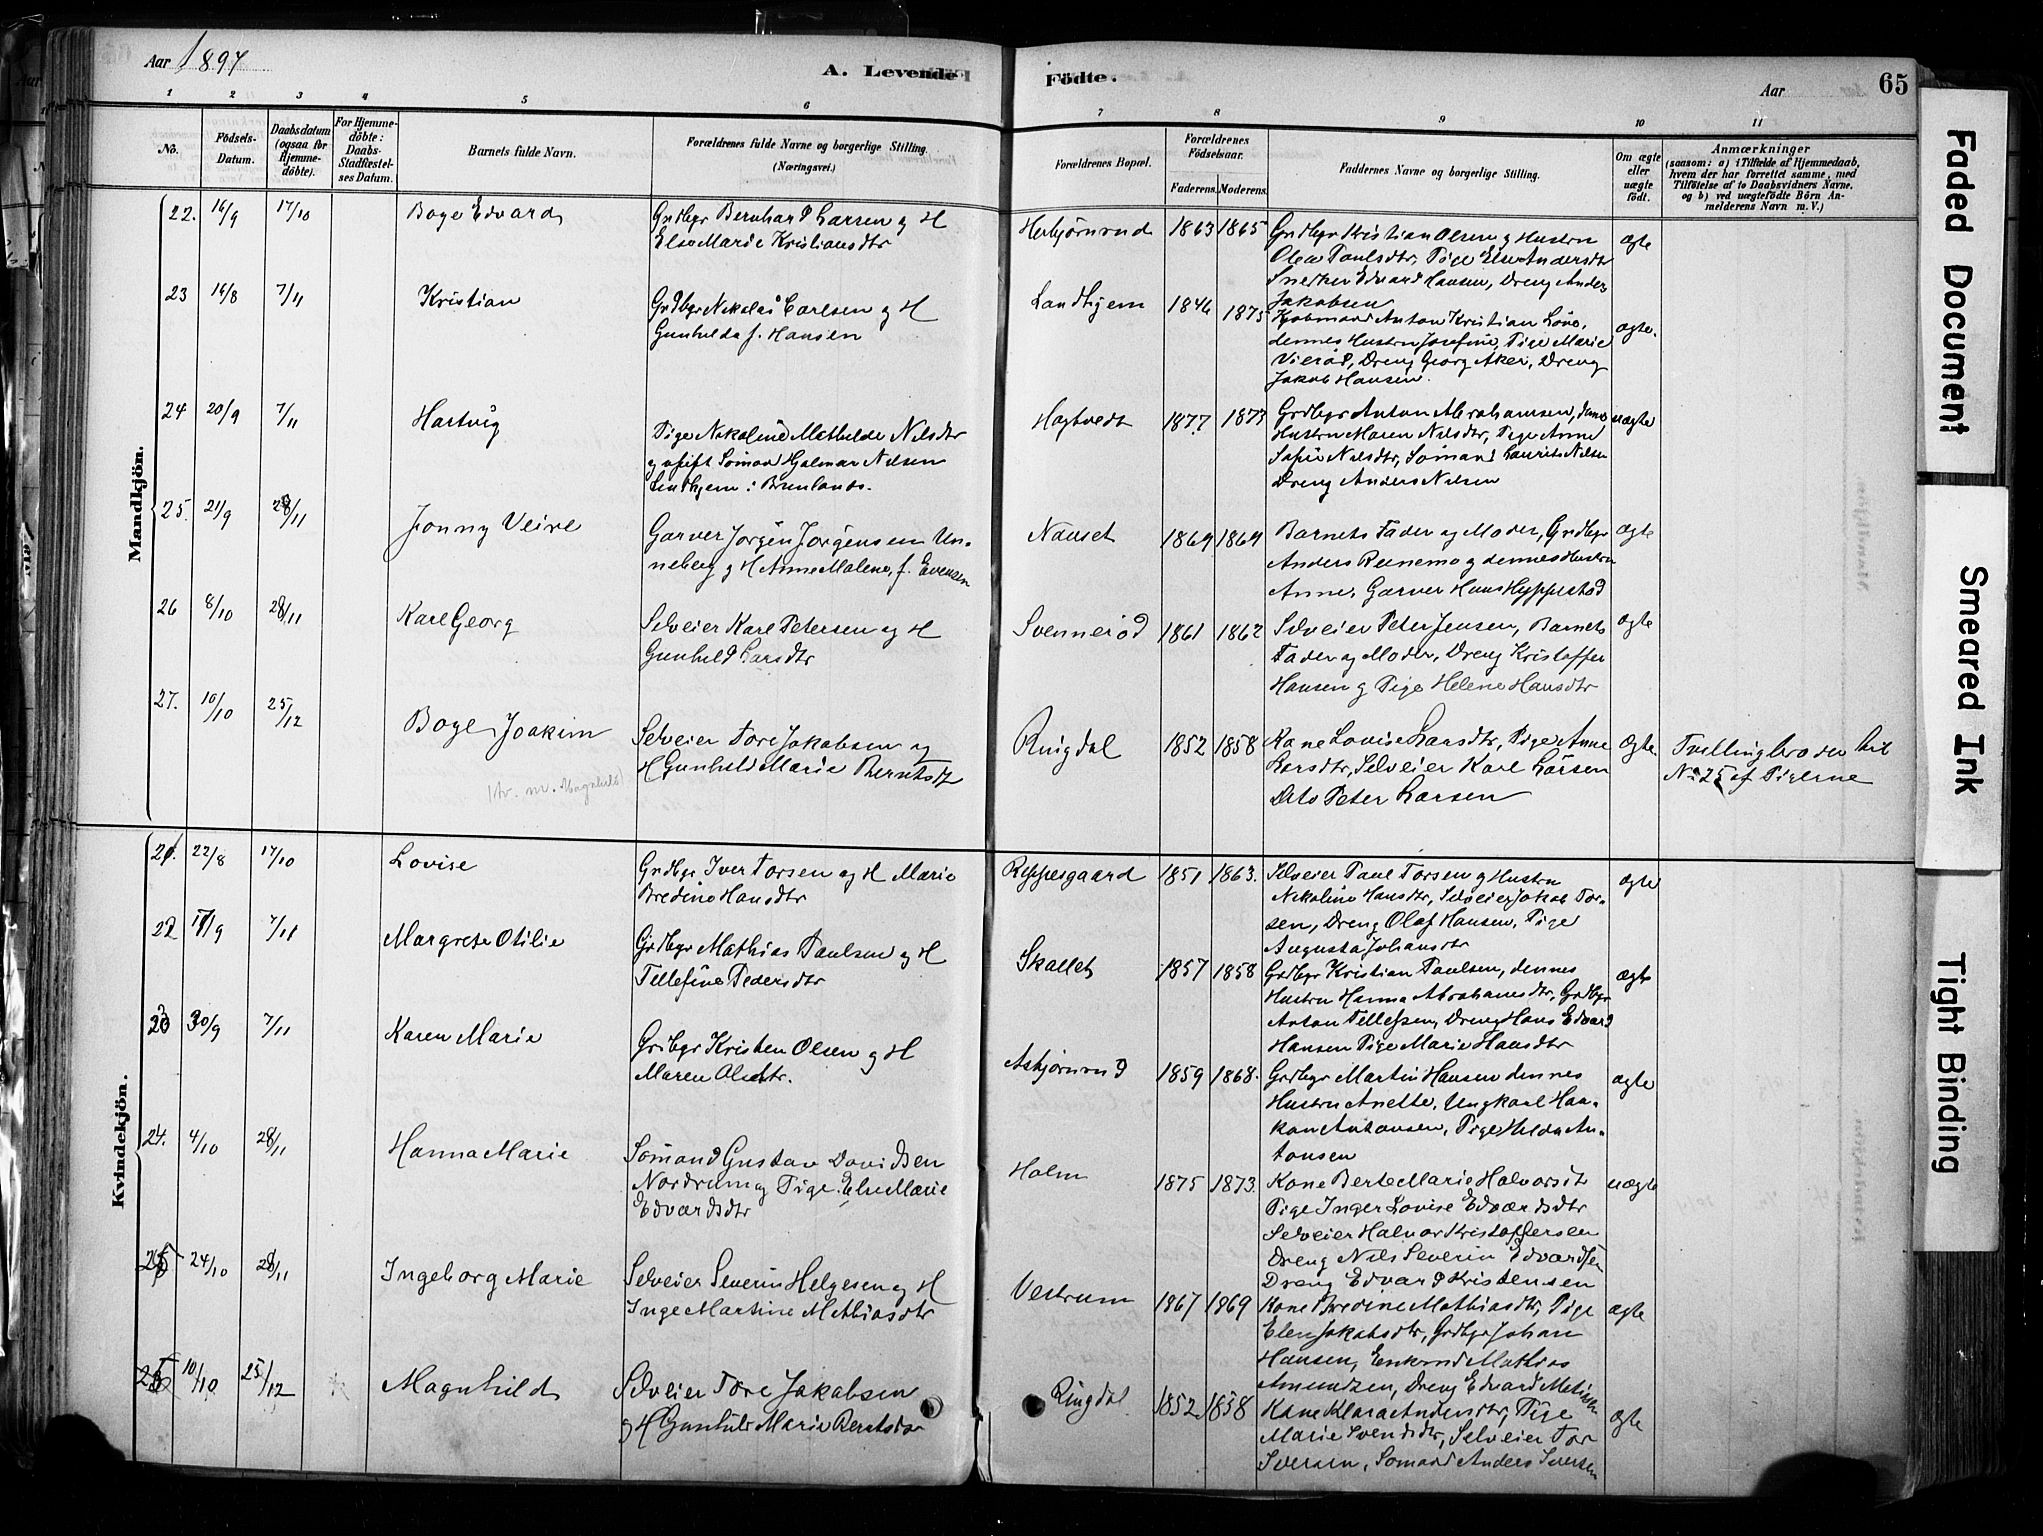 Aar 1897
A. Levende Födte.
Aar
65
1 2 3 4 5 6 7 8 9 10 11
No.
Födsels-Datum.
Daabsdatum (ogsaa for Hjemme-döbte).
For Hjemme-döbte: Daabs-Stadfæstel-ses Datum.
Barnets fulde Navn.
Forældrenes fulde Navne og borgerlige Stilling.
(Næringsvei.)
Forældrenes Bopæl.
Forældrenes Födselsaar.
Faderens. Moderens.
Faddernes Navne og borgerlige Stilling.
Om ægte eller uægte födt.
Anmærkninger
(saasom: a) i Tilfælde af Hjemmedaab,
hvem der har forrettet samme, med
Tilföielse af to Daabsvidners Navne.
og b) ved uægtefödte Börn An-
melderens Navn m. V.)
Mandkjön.
22. 16/9 17/10 Boye Edvard
Grdbgr Bernhard Larsen og H
Else Marie Kristiansdtr
Herbjörnrud 1863 1865
Grdbgr Kristian Olsen og Hustru
Olea Paulsdtr, Pige Else Andersdtr
Snedker Edvard Hansen, Dreng Anders
Jakobsen
ægte
23 16/8 7/11 Kristian
Grdbgr Nikolai Carlsen og H
Gunhilda f. Hansen
Landhjem 1846 1875
Kjobmand Anton Kristian Löve,
dennes Hustru Josefine, Pige Marie
Vieröd, Dreng Georg Aker, Dreng
Jakob Hansen.
ægte.
24 20/9 7/11 Hartvig
Pige Nikoline Mathilde Nilsdtr
og ugift Sömand Hjalmar Nilsen
Lindhjem i Brunlands.
Hagtvedt 1877 1873
Grdbgr Anton Abrahamsen, dennes
Hustru Maren Nilsdtr, Pige Anne
Sofie Nilsdtr, Sömand Laurits Nilsen
Dreng Anders Nilsen
uægte
25. 21/9 28/11 Jonny Veire
Garver Jörgen Jörgensen Un-
neberg og H Anne Malene, f. Evensen
Nauset 1864 1864
Barnets Fader og Moder, Grdbgr
Anders Reinemo og dennes Hustru
Anne, Garver Hans Hyppestad
ægte
26 8/10 28/11 Karl Georg
Selveier Karl Petersen og H
Gunhild Larsdtr
Svenneröd 1861 1862
Selveier Peter Jensen, Barnets
Fader og Moder, Dreng Kristoffer
Hansen og Pige Helene Hansdtr
ægte
27. 10/10 25/12 Boye Joakim
(tv. m. Magnhild)
Selveier Tore Jakobsen og
H Gunhild Marie Berntsdtr
Ringdal 1852 1858
Kone Lovise Larsdtr, Pige Anne
Larsdtr, Selveier Karl Larsen
Dito Peter Larsen
ægte
Tvillingbroder til
No 25 af Pigerne
Kvindekjön.
21. 22/8 17/10 Lovise
Grdbgr Iver Torsen og H Marie
Bredine Hansdtr
Röppesgaard 1851 1863.
Selveier Paul Torsen og Hustru
Nikoline Hansdtr, Selveier Jakob Tor-
sen, Dreng Olaf Hansen, Pige
Augusta Johansdtr
ægte
22 17/9 7/11 Margrete Otilie
Grdbgr Mathias Paulsen og H
Tellefine Pedersdtr
Skallet 1857 1858
Grdbgr Kristian Paulsen, dennes
Hustru Hanna Abrahamsdtr, Grdbgr
Anton Tellefsen, Dreng Hans Edvard
Hansen Pige Marie Hansdtr
ægte
23 30/9 7/11 Karen Marie
Grdbgr Kristen Olsen og H
Maren Olsdtr.
Asbjörnrud 1859 1868.
Grdbgr Martin Hansen dennes
Hustru Anette, Ungkarl Haa-
kon Antonsen, Pige Hilda An-
tonsen
ægte
24. 4/10 28/11 Hanna Marie
Sömand Gustav Davidsen
Nordrum og Pige Else Marie
Edvardsdtr
Holm 1875 1873.
Kone Berte Marie Halvorsdt
Pige Inger Lovise Edvardsdtr
Selveier Halvor Kristoffersen
Dreng Nils Severin Edvardsen
Dreng Edvard Kristensen
uægte
25 24/10 28/11 Ingeborg Marie
Selveier Severin Helgesen og H
Inge Martine Mathiasdtr
Vestrum 1867 1869
Kone Bredine Mathiasdtr, Pige
Elen Jakobsdtr, Grdbgr Johan
Hansen, Enkemd Mathias
Amundsen, Dreng Edvard Mathisen
ægte
25 10/10 25/12 Magnhild
Selveier Tore Jakobsen
og H Gunhild Marie Berntsdtr
Ringdal 1852 1858
Kone Klara Andersdtr, Pige
Marie Svendsdtr, Selveier Tor
Iversen, Sömand Anders Iversen
ægte
Faded Document
Smeared Ink
Tight Binding